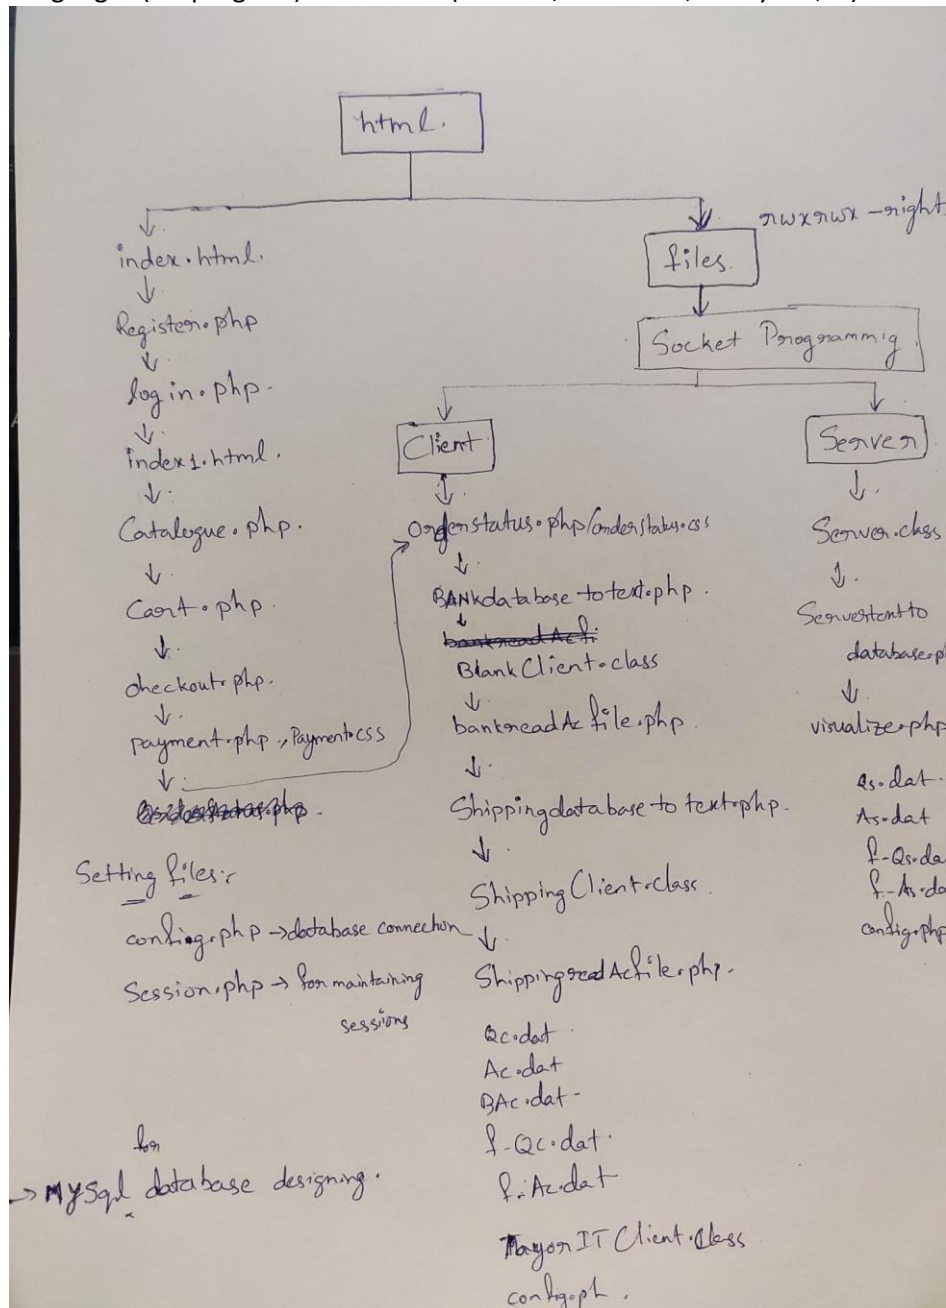 html.
rwxrwx-right
files.
Socket Programmig.
index.html.
Register.php
log in.php.
index1.html.
Catalogue.php.
Cart.php.
checkout.php.
payment.php., Payment.css
Setting files:
config.php → database connection
Session.php → for maintaining
sessions
for
→ MySql database designing.
Client
Orderstatus.php/orderstatus.css
BANKdatabase totext.php.
bankreadAcfi
BlankClient.class
bankreadAc file.php.
Shippingdatabase to text.php.
ShippingClient.class.
ShippingreadAcfile.php.
Qc.dat
Ac.dat
BAc.dat-
f-Qc.dat.
f-Ac.dat
IT Client.Class
config.ph.
Server
Server.class
to
database.p
visualize.php
Qs.dat.
As.dat
f-Qs.da
f-As.da
config.php